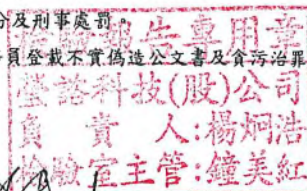 分及刑事處罰。
員登載不實偽造公文書及貪污治罪
檢驗報告專用章
瑩諮科技(股)公司
負責人:楊炯浩
檢驗室主管:鐘美紅